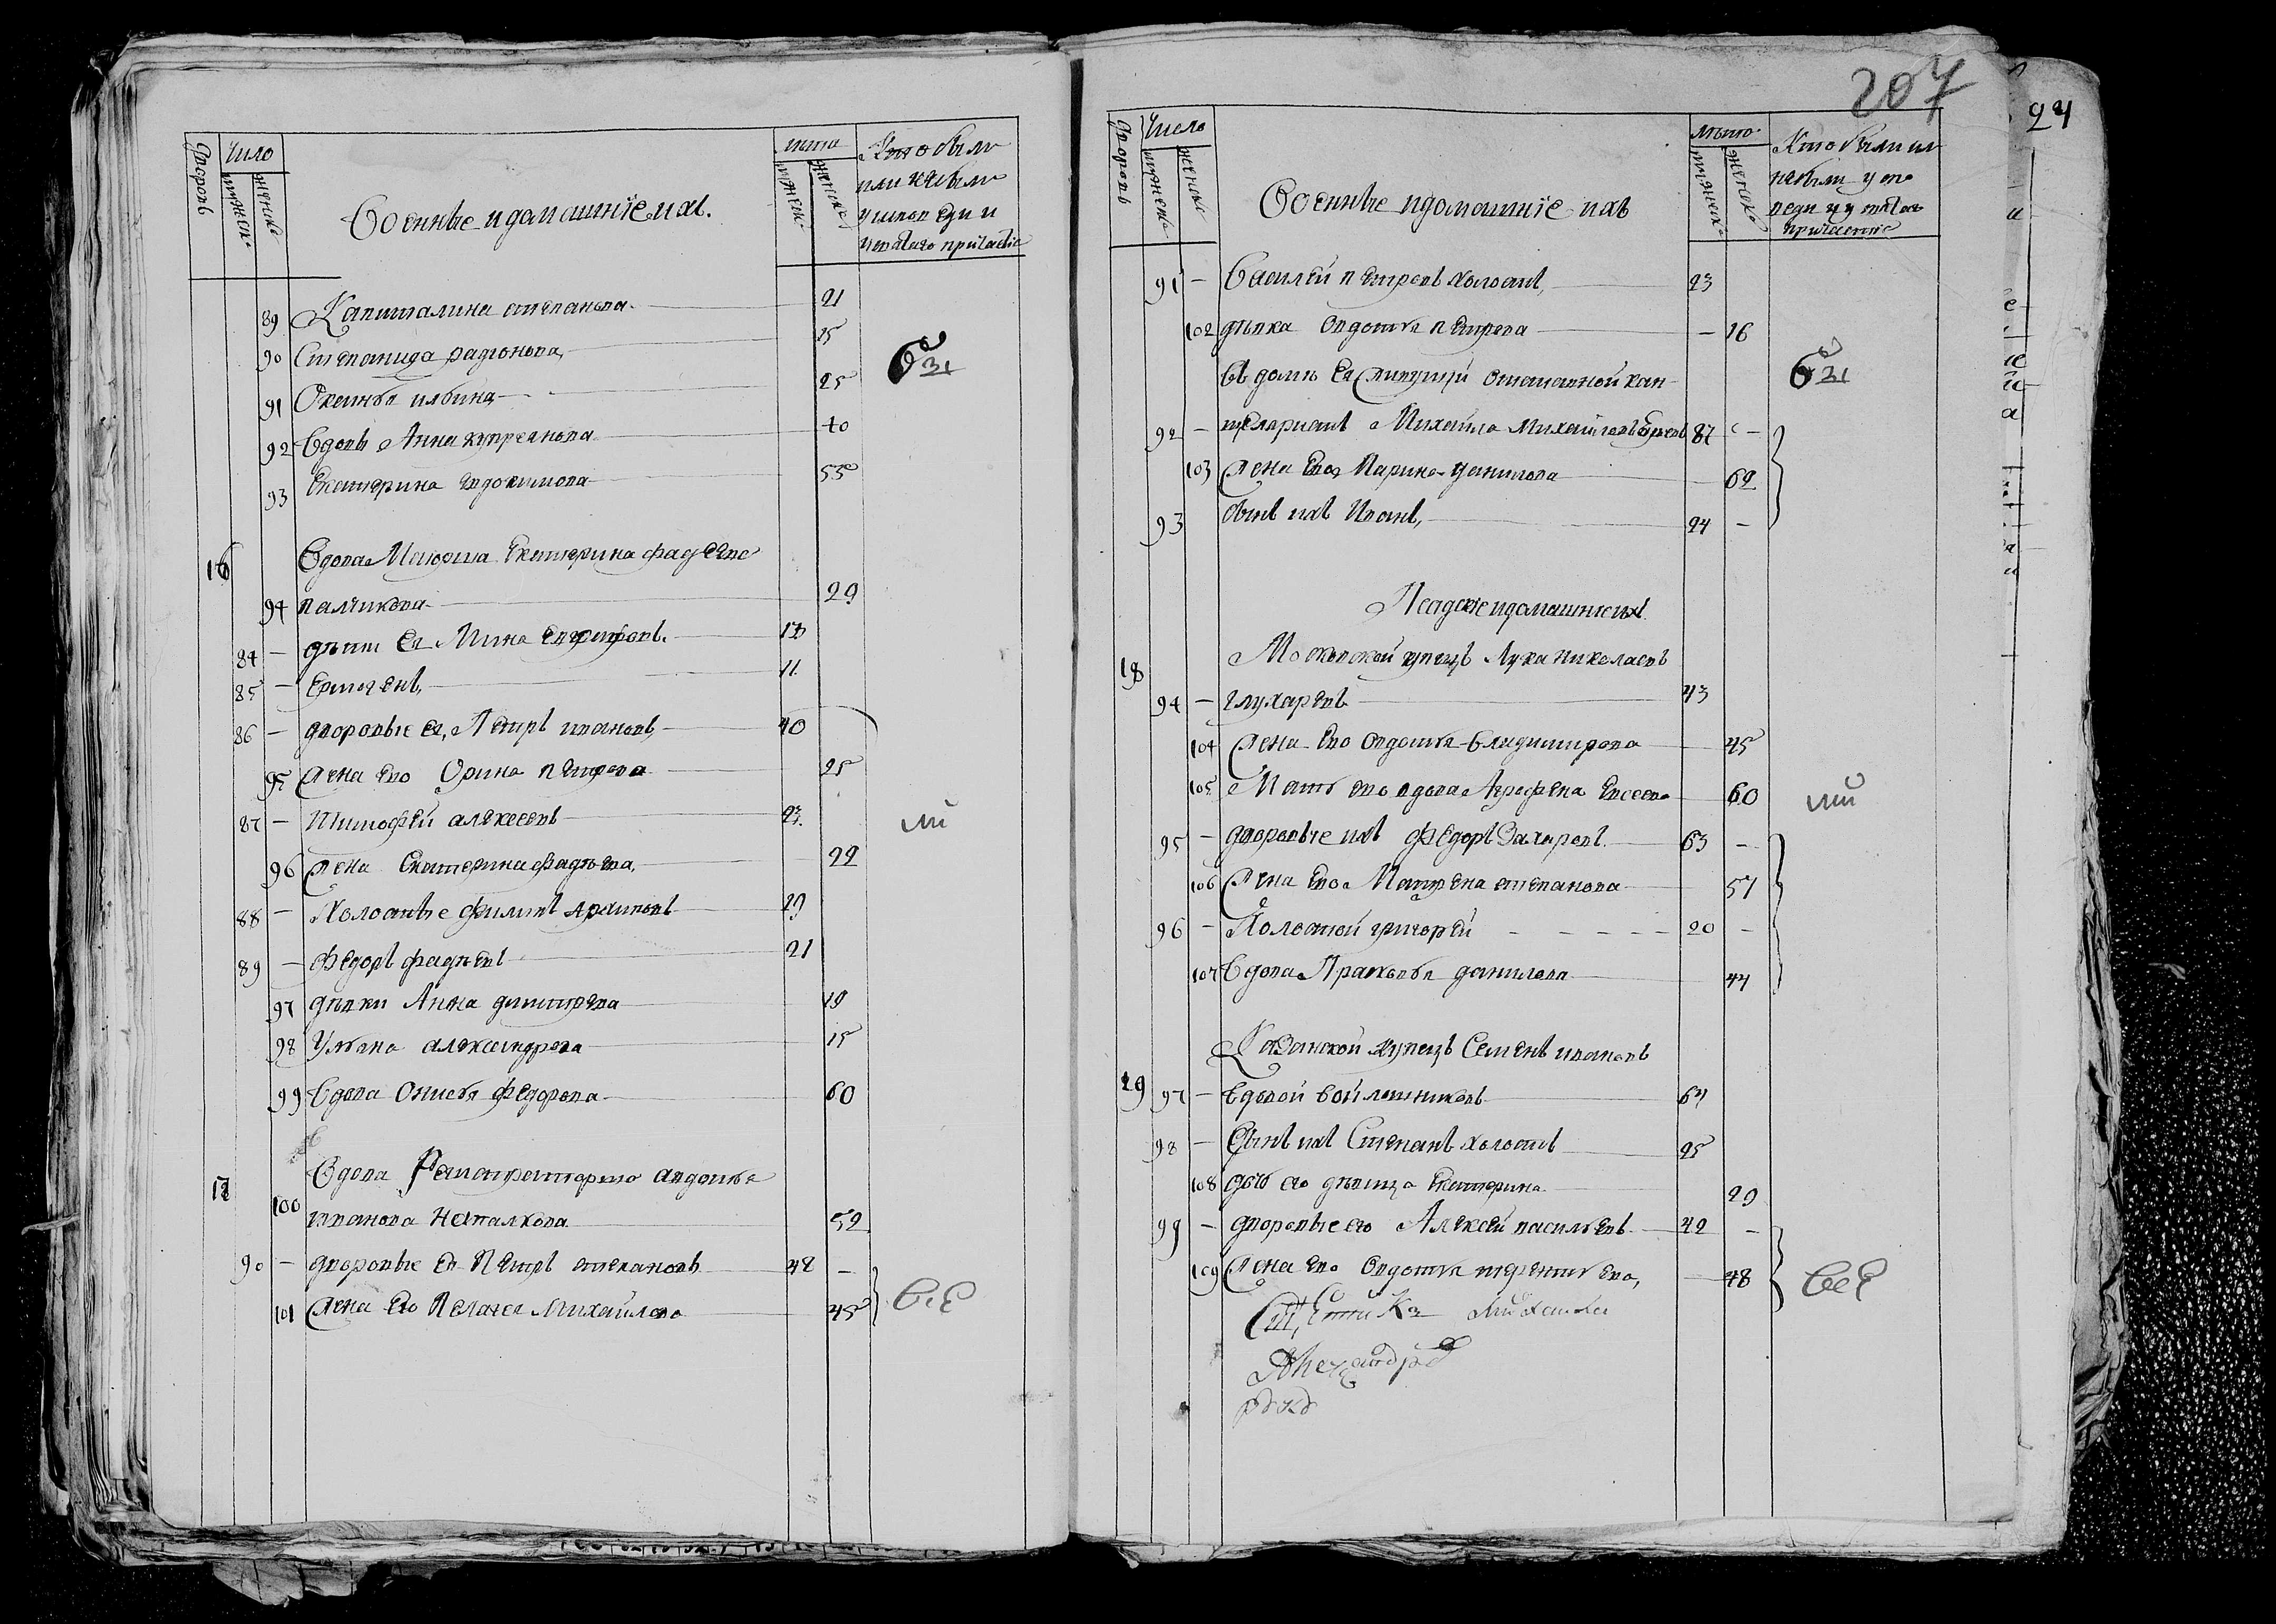 дворовъ
число
мужеск
женска
Военные и домашние ихъ.
лета
мужеск
женска
Кто были
или не были
у исповеди и
и святаго причастіе
89 Капиталина степанова 21
90 Степанида радіонова 15
91 Оксинья ильина 25
92 Вдовы Анна купреянова 40
93 Екатерина евдокимова 55
16 Вдова Маиорша Екатерина фадеева
94 палчикова 29
84 – дети Ея Мина
85 – Ермогенъ, 11
86 – дворовые Ея, Петръ ивановъ, 40
95 Жена Ево Орина петрова 25
87 – Тимофей алексеевъ 23
96 Жена Екатерина фадеева, 22
88 – Холостые филипъ архиповъ 29
89 – федоръ фадеевъ 21
97 девки Анна дмитрева 19
98 Ульяна александрова 15
99 Вдова Онисья федорова 60
17 Вдова Регистраторша авдотья
100 иванова 52
90 – дворовые Ея Петръ степановъ 48 –
101 Жена Его Пелагея Михайлова 45
все
207
24
дворовъ
число
мужеск
женска
Военные и домашніе ихъ
лета
мужеск
женска
Кто были ил
небыли у испо
веди и у святаго
причастие
91 – Василей петровъ холостъ, 23
102 девка Овдотья петрова – 16
въ доме Ея живущей отставной кан
92 – целяристъ Михайла Михайловъ 87 –
103 Жена Ево Марина данилова 62
93 сынъ ихъ Иванъ, 24 –
Посадские и домашние ихъ
18 Московской купецъ Лука николаевъ
94 – глухаревъ 43
104 Жена Ево Овдотья владимирова 45
105 Мать ево вдова Аграфена Евсеева 60
95 – дворовые ихъ федоръ Захаровъ 63 –
106 Жена Ево Матрена степанова 57
96 – Холостой григорей 20 –
107 Вдова Прасковья данилова 44
Казанской купецъ Семенъ ивановъ
19 97 – вдовой войлошниковъ 64
98 – Сынъ ихъ Степанъ холостъ 25
108 дочь его девица Екатерина 29
99 – дворовые его Алексей васильевъ 42 –
109 Жена Ево Овдотья терентьева, – 48
все